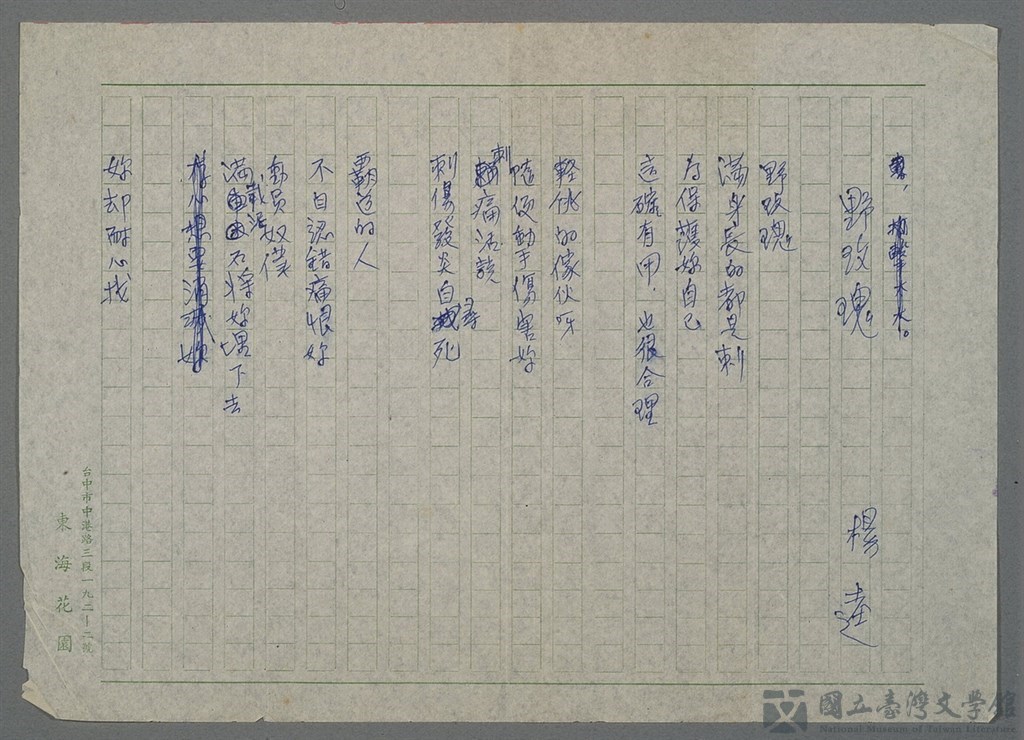 野玫瑰
楊逵
野玫瑰
滿身長的都是刺
為保護妳自己
這確有用，也很合理
輕佻的傢伙呀
隨便動手傷害妳
刺痛活該
刺傷發炎自尋死
霸道的人
不自認錯痛恨妳
動員奴僕
滿載泥石將妳埋下去
存心想要消滅妳
妳却耐心找
台中市中港路三段一九二—二號
東海花園
國立臺灣文學館
National Museum of Taiwan Literature